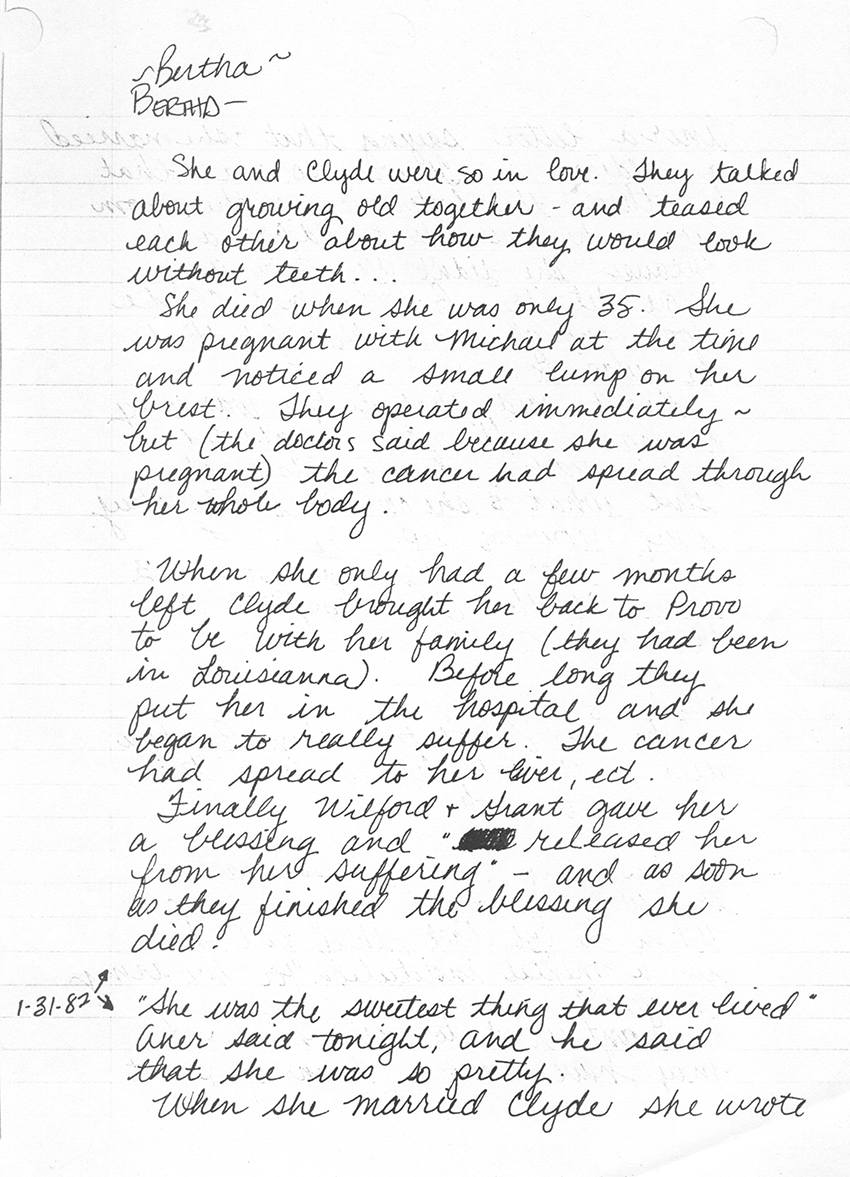 ~Bertha~
BERTHA—
She and Clyde were so in love. They talked
about growing old together - and teased
each other about how they would look
without teeth...
She died when she was only 35. She
was pregnant with Michael at the time
and noticed a small lump on her
brest. They operated immediately ~
but (the doctors said because she was
pregnant) the cancer had spread through
her whole body.
When she only had a few months
left Clyde brought her back to Provo
to be with her family (they had been
in Louisianna). Before long they
put her in the hospital and she
began to really suffer. The cancer
had spread to her liver, ect.
Finally Wilford + Grant gave her
a blessing and " released her
from her suffering" - and as soon
as they finished the blessing she
died.
1-31-82 "She was the sweetest thing that ever lived"
Aner said tonight, and he said
that she was so pretty.
When she married Clyde she wrote